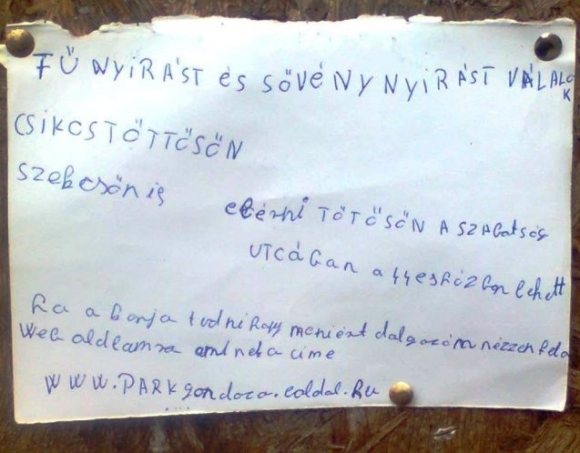 FŰ NYIRÁST és SŐVÉNYNYIRÁST VÁLALOK
CSIKOSTŐTTŐSŐN
szekcsőn is
elérhi TŐTŐSŐN A SZABATSÁG
UTCÁBAN a 44esházban lehett
ha a karja tudni hogy meniért dalgozom nézzen fel a
Web aldlamra amtnek a címe
WWW.PARKgondozo.eoldal.hu